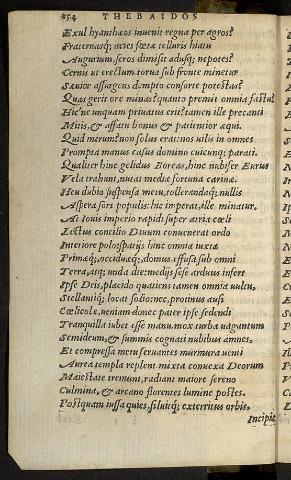 154 THEBAIDOS
Exul hyanthæos inuenit regna per agros?
Fraternasq; acies fœta telluris hiatu
Augurium seros dimisit adusq; nepotes?
Cernis ut erectum torua sub fronte minetur
Sæuior assurgens dempto consorte potestas?
Quas gerit ore minas? quanto premit omnia fastu?
Hic ne unquam priuatus erit? tamen ille precanti
Mitis, & affatu bonus & patientior æqui.
Quid mirum? non solus erat. nos uilis in omnes
Prompta manus casus domino cuicunq; parati.
Qualiter hinc gelidus Boreas, hinc nubifer Eurus
Vela trahunt, nutat mediæ fortuna carinæ.
Heu dubio suspensa metu, tollerandaq; nullis
Aspera sors populis: hic imperat, ille minatur.
At Iouis imperio rapidi super atria cœli
Lectus concilio Diuum conuenerat ordo
Interiore polo: spatijs hinc omnia iuxta
Primæq; occiduæq; domus. effusa sub omni
Terra, atq; unda die: medijs sese arduus infert
Ipse Deis, placido quatiens tamen omnia uultu,
Stellantiq; locat solio: nec protinus ausi
Cœlicolæ, ueniam donec pater ipse sedendi
Tranquilla iubet esse manu. mox turba uagantum
Semideum, & summis cognati nubibus amnes.
Et compressa metu seruantes murmura uenti
Aurea templa replent: mixta conuexa Deorum
Maiestate tremunt, radiant maiore sereno
Culmina, & arcano florentes lumine postes.
Postquam iussa quies, siluitq; exterritus orbis,
Incipit